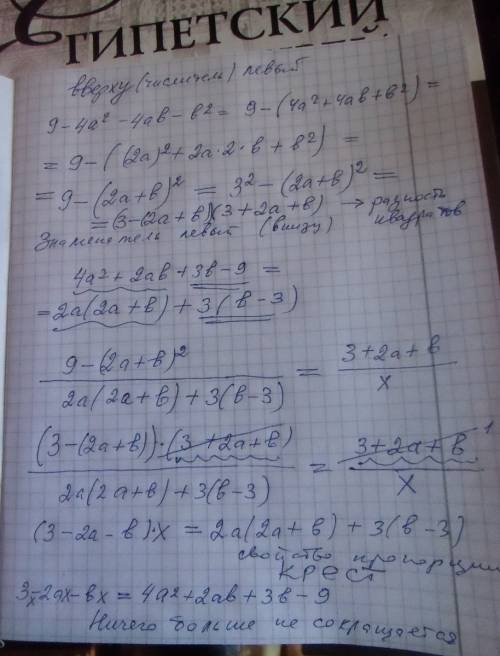 ГИПЕТСКИЙ
вверху (числитель) левый
9-4a²-4ab-b² = 9-(4a²+4ab+b²) =
= 9-((2a)²+2a·2·b+b²) =
= 9-(2a+b)² = 3²-(2a+b)² =
= (3-(2a+b))(3+2a+b) → разность квадратов
Знаменатель левый (внизу)
4a²+2ab+3b-9 =
= 2a(2a+b)+3(b-3)
9-(2a+b)² / 2a(2a+b)+3(b-3) = 3+2a+b / x
(3-(2a+b))·(3+2a+b) / 2a(2a+b)+3(b-3) = 3+2a+b 1 / x
(3-2a-b)·x = 2a(2a+b)+3(b-3)
свойство пропорции
крест
3x-2ax-bx = 4a²+2ab+3b-9
Ничего больше не сокращается